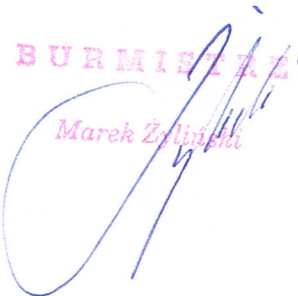 BURMISTRZ
Marek Żyliński